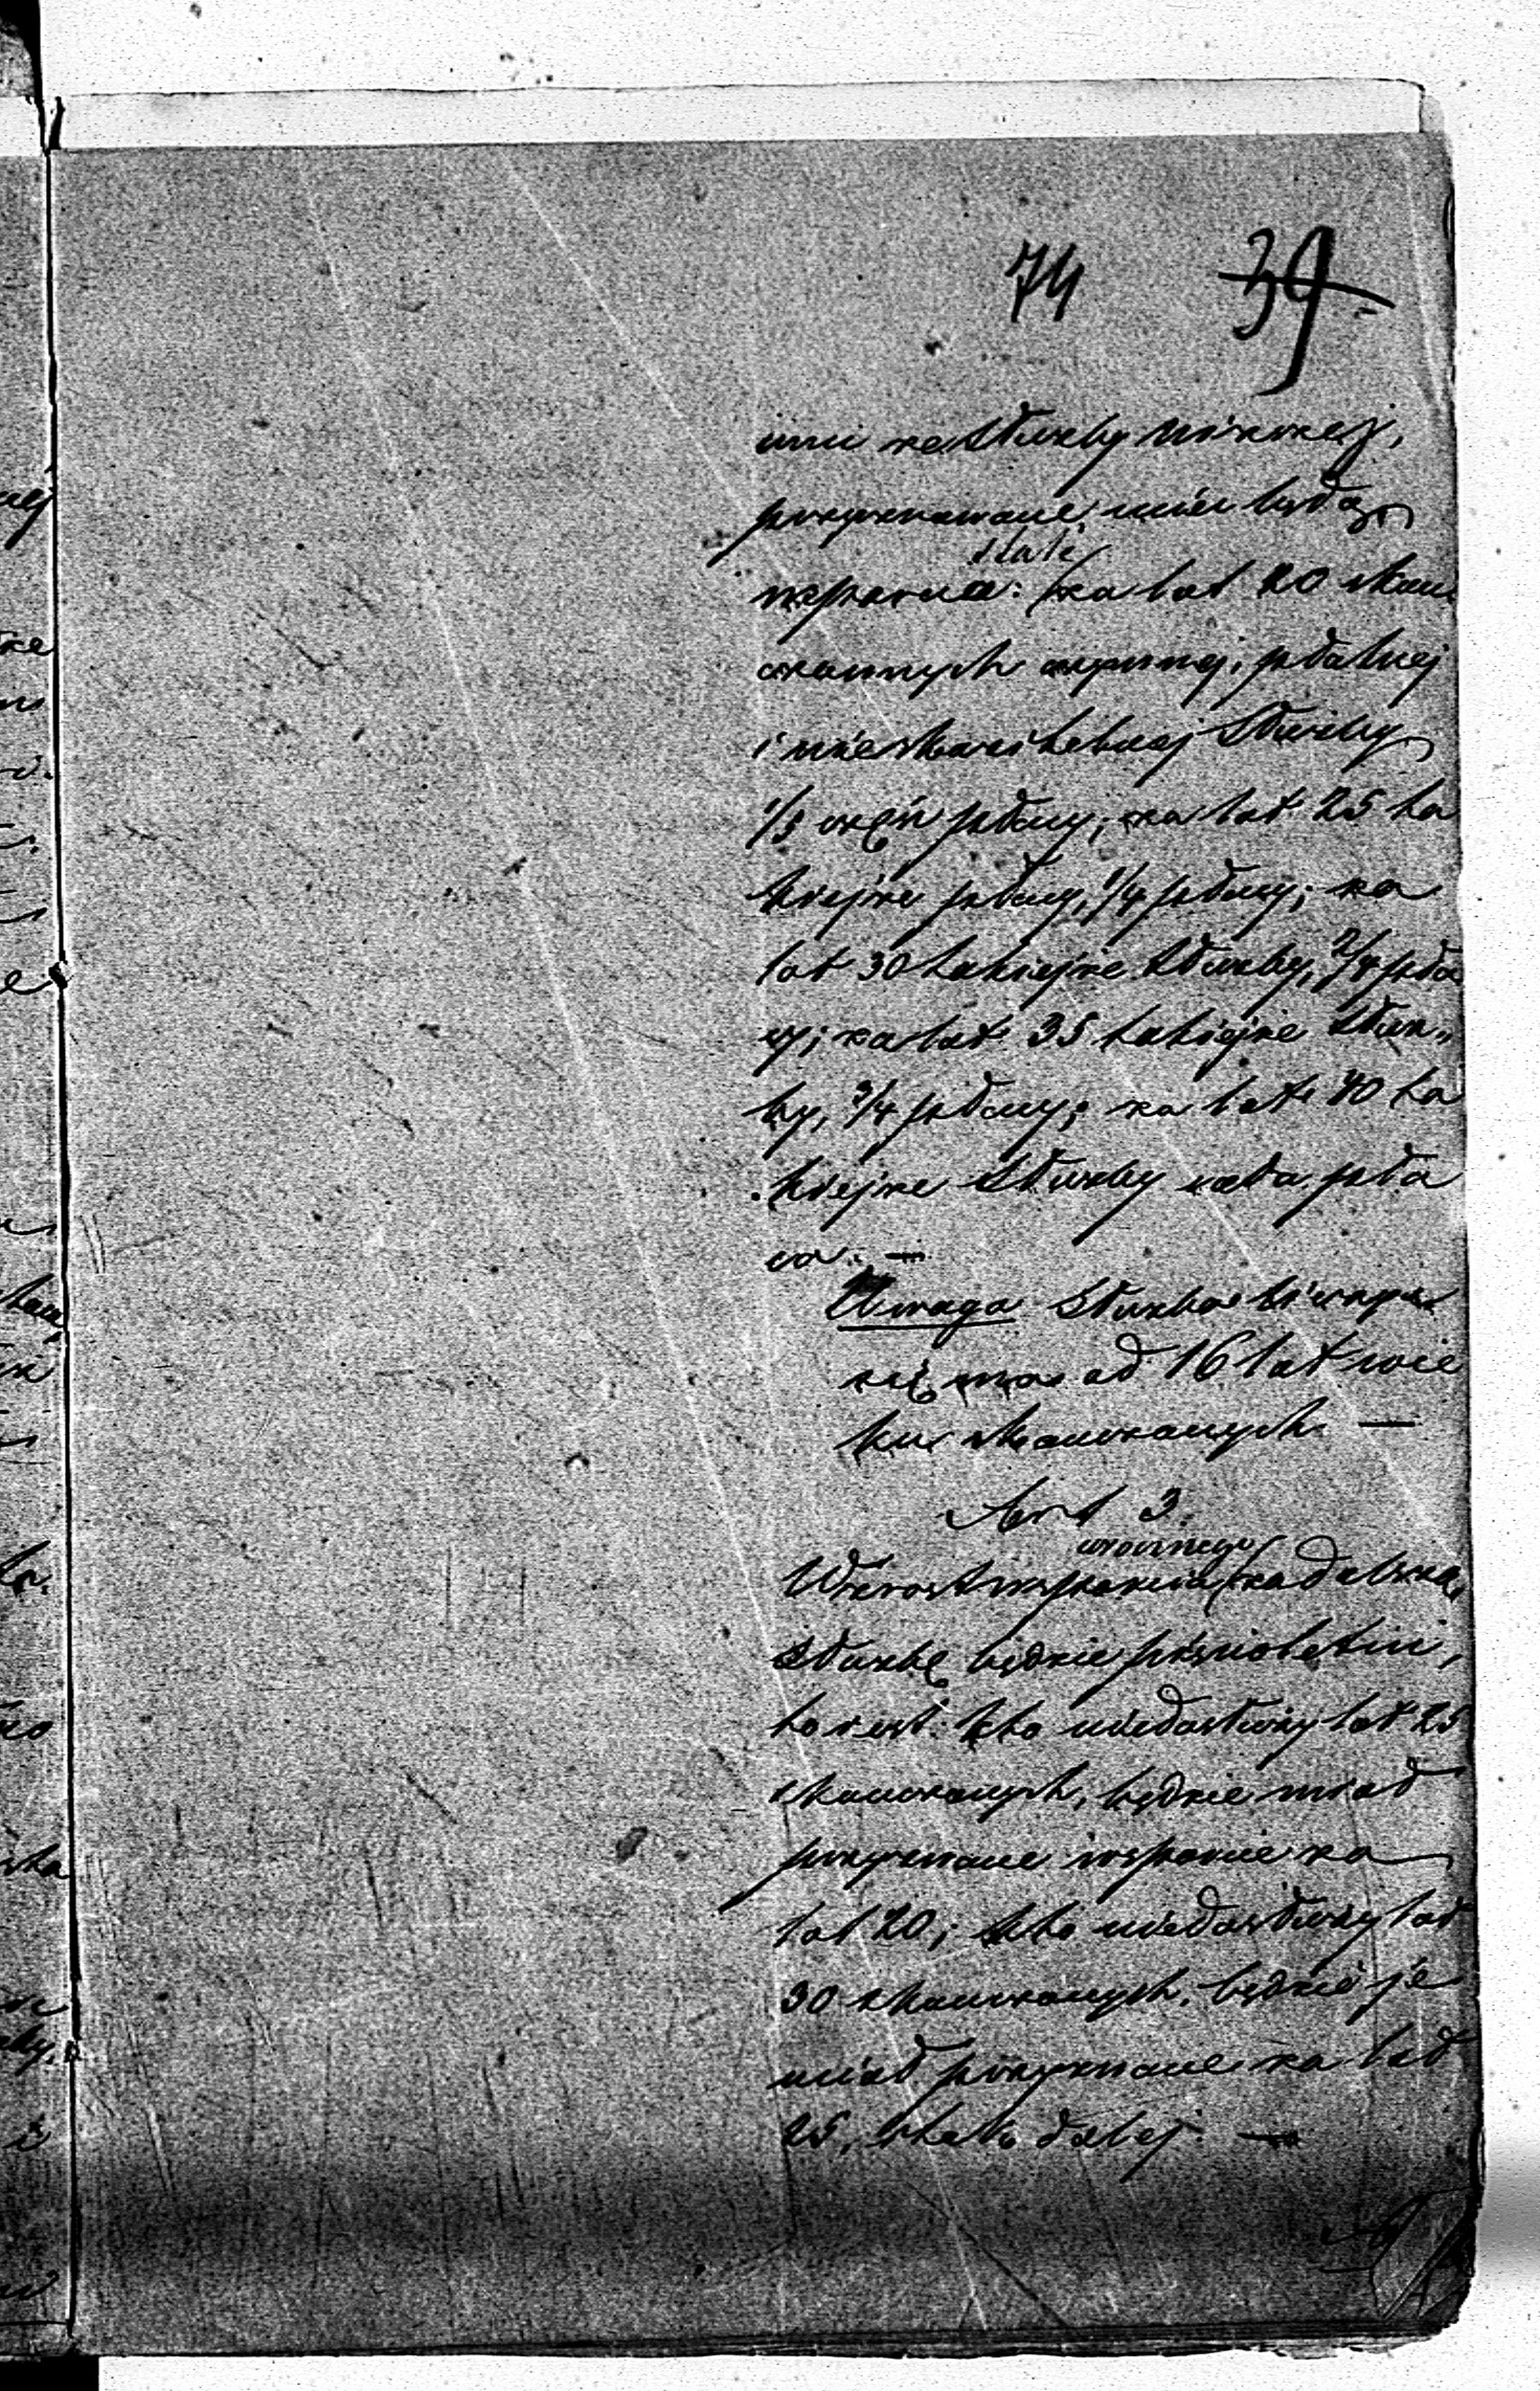 74 39
imi ze służby niższej,
przyznawane mieć będą
stałe
wsparcia: za lat 20 skoń
czonych czynnej, płatnej
i nieskazitelnej służby
1/5 część płacy; za lat 25 ta
kiejże płacy, 1/4 płacy; za
lat 30 takiejże służby, 2/4 pła
cy; za lat 35 takiejże służ„
by, 3/4 płacy; za lat 40 ta
kiejże służby cała pła
ca. —
Uwaga Służba liczyć
się ma od 16 lat wie
ku skończonych. —
Art 3.
rocznego
Wzrost wsparcia za dalszą
służbę będzie pięcioletni,
to jest: kto niedosłuży lat 25
skończonych, będzie miał
przyznane wsparcie za
lat 20; kto niedosłuży lat
30 skończonych, będzie je
miał przyznane za lat
25, i tak dalej. —